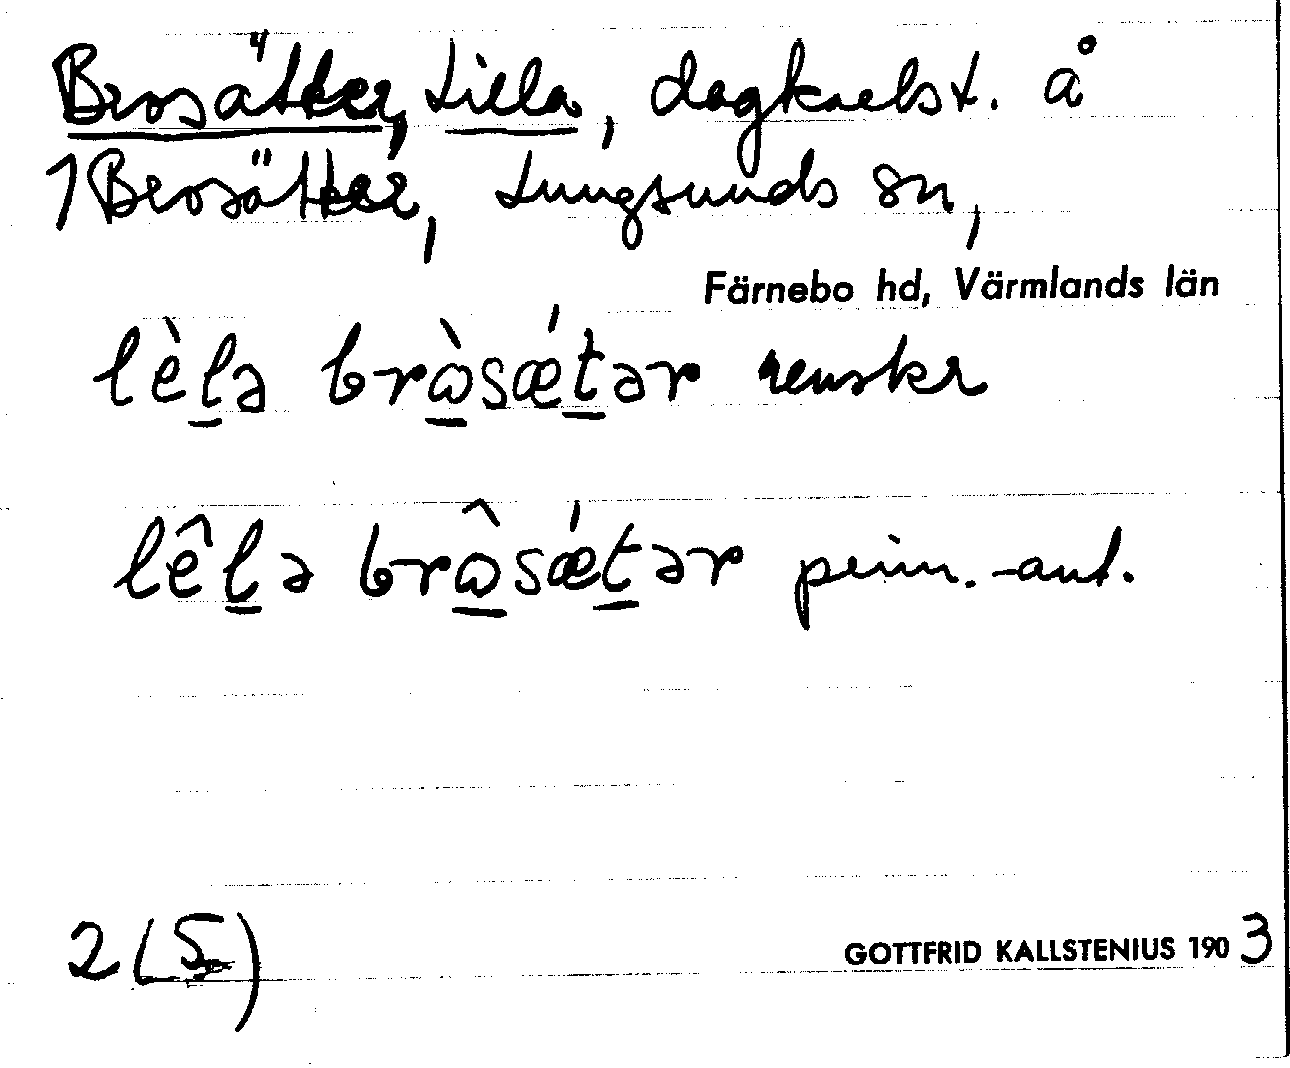 Brosätter, Lilla, dagkarlst. å
1 Brosätter, Lungsunds sn,
Färnebo hd, Värmlands län
lèlə brὼsǽtər renskr
lêlə brω̂sǽtər penn.-ant.
2 (5)
GOTTFRID KALLSTENIUS 1903